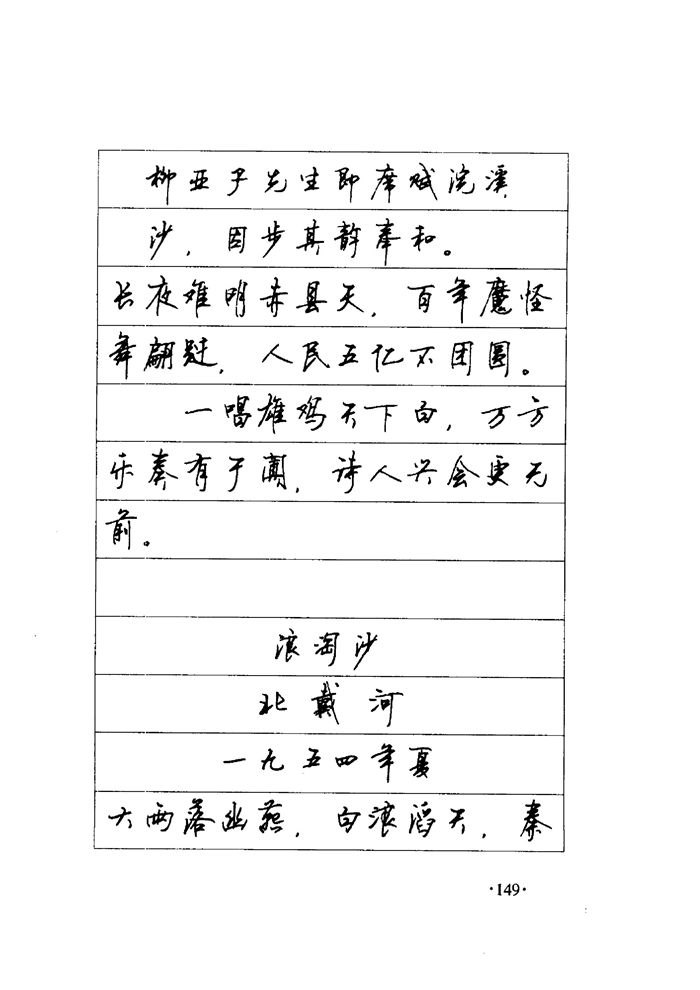 柳亚子先生即席赋浣溪
沙，因步其韵奉和。
长夜难明赤县天，百年魔怪
舞翩跹，人民五亿不团圆。
一唱雄鸡天下白，万方
乐奏有于阗，诗人兴会更无
前。
浪淘沙
北戴河
一九五四年夏
大雨落幽燕，白浪滔天，秦
·149·